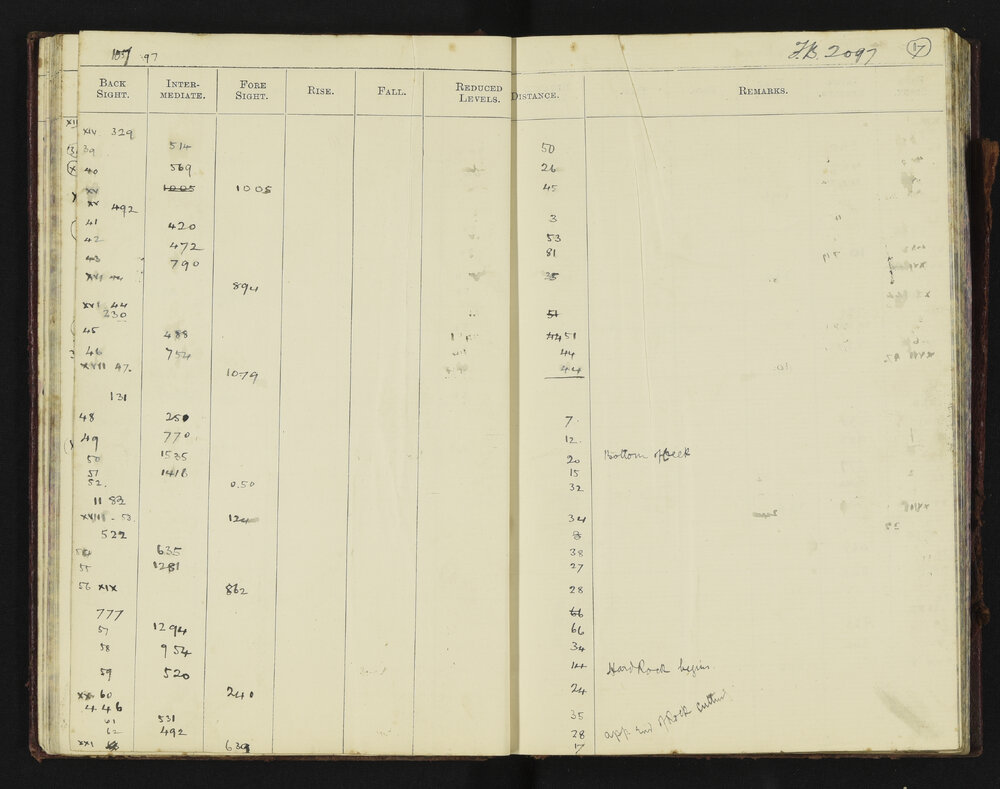 1057 .97 F.B. 2097 17
BACK SIGHT. INTER-MEDIATE. FORE SIGHT. RISE. FALL. REDUCED LEVELS. DISTANCE. REMARKS.
XIV 329
39 514 50
40 569 26
XV 1005 1005 45
XV 492
41 420 3
42 472 53
43 790 81
XVI 44 894 35
XVI 44
230 51
45 488 44 51
46 754 44
XVII 47. 1079 44
131
48 250 7.
49 770 12.
50 1535 20 Bottom of creek
51 1418 15
52. 0.50 32
11 82
XVIII - 53. 124 34
522 8
54 635 38
55 1281 27
56 XIX 862 28
777 66
57 1294 66
58 954 34
59 520 14 Hard Rock begins
XX 60 240 24
446
61 531 35
62 492 28 app. end of Rock cutting
XXI 639 17